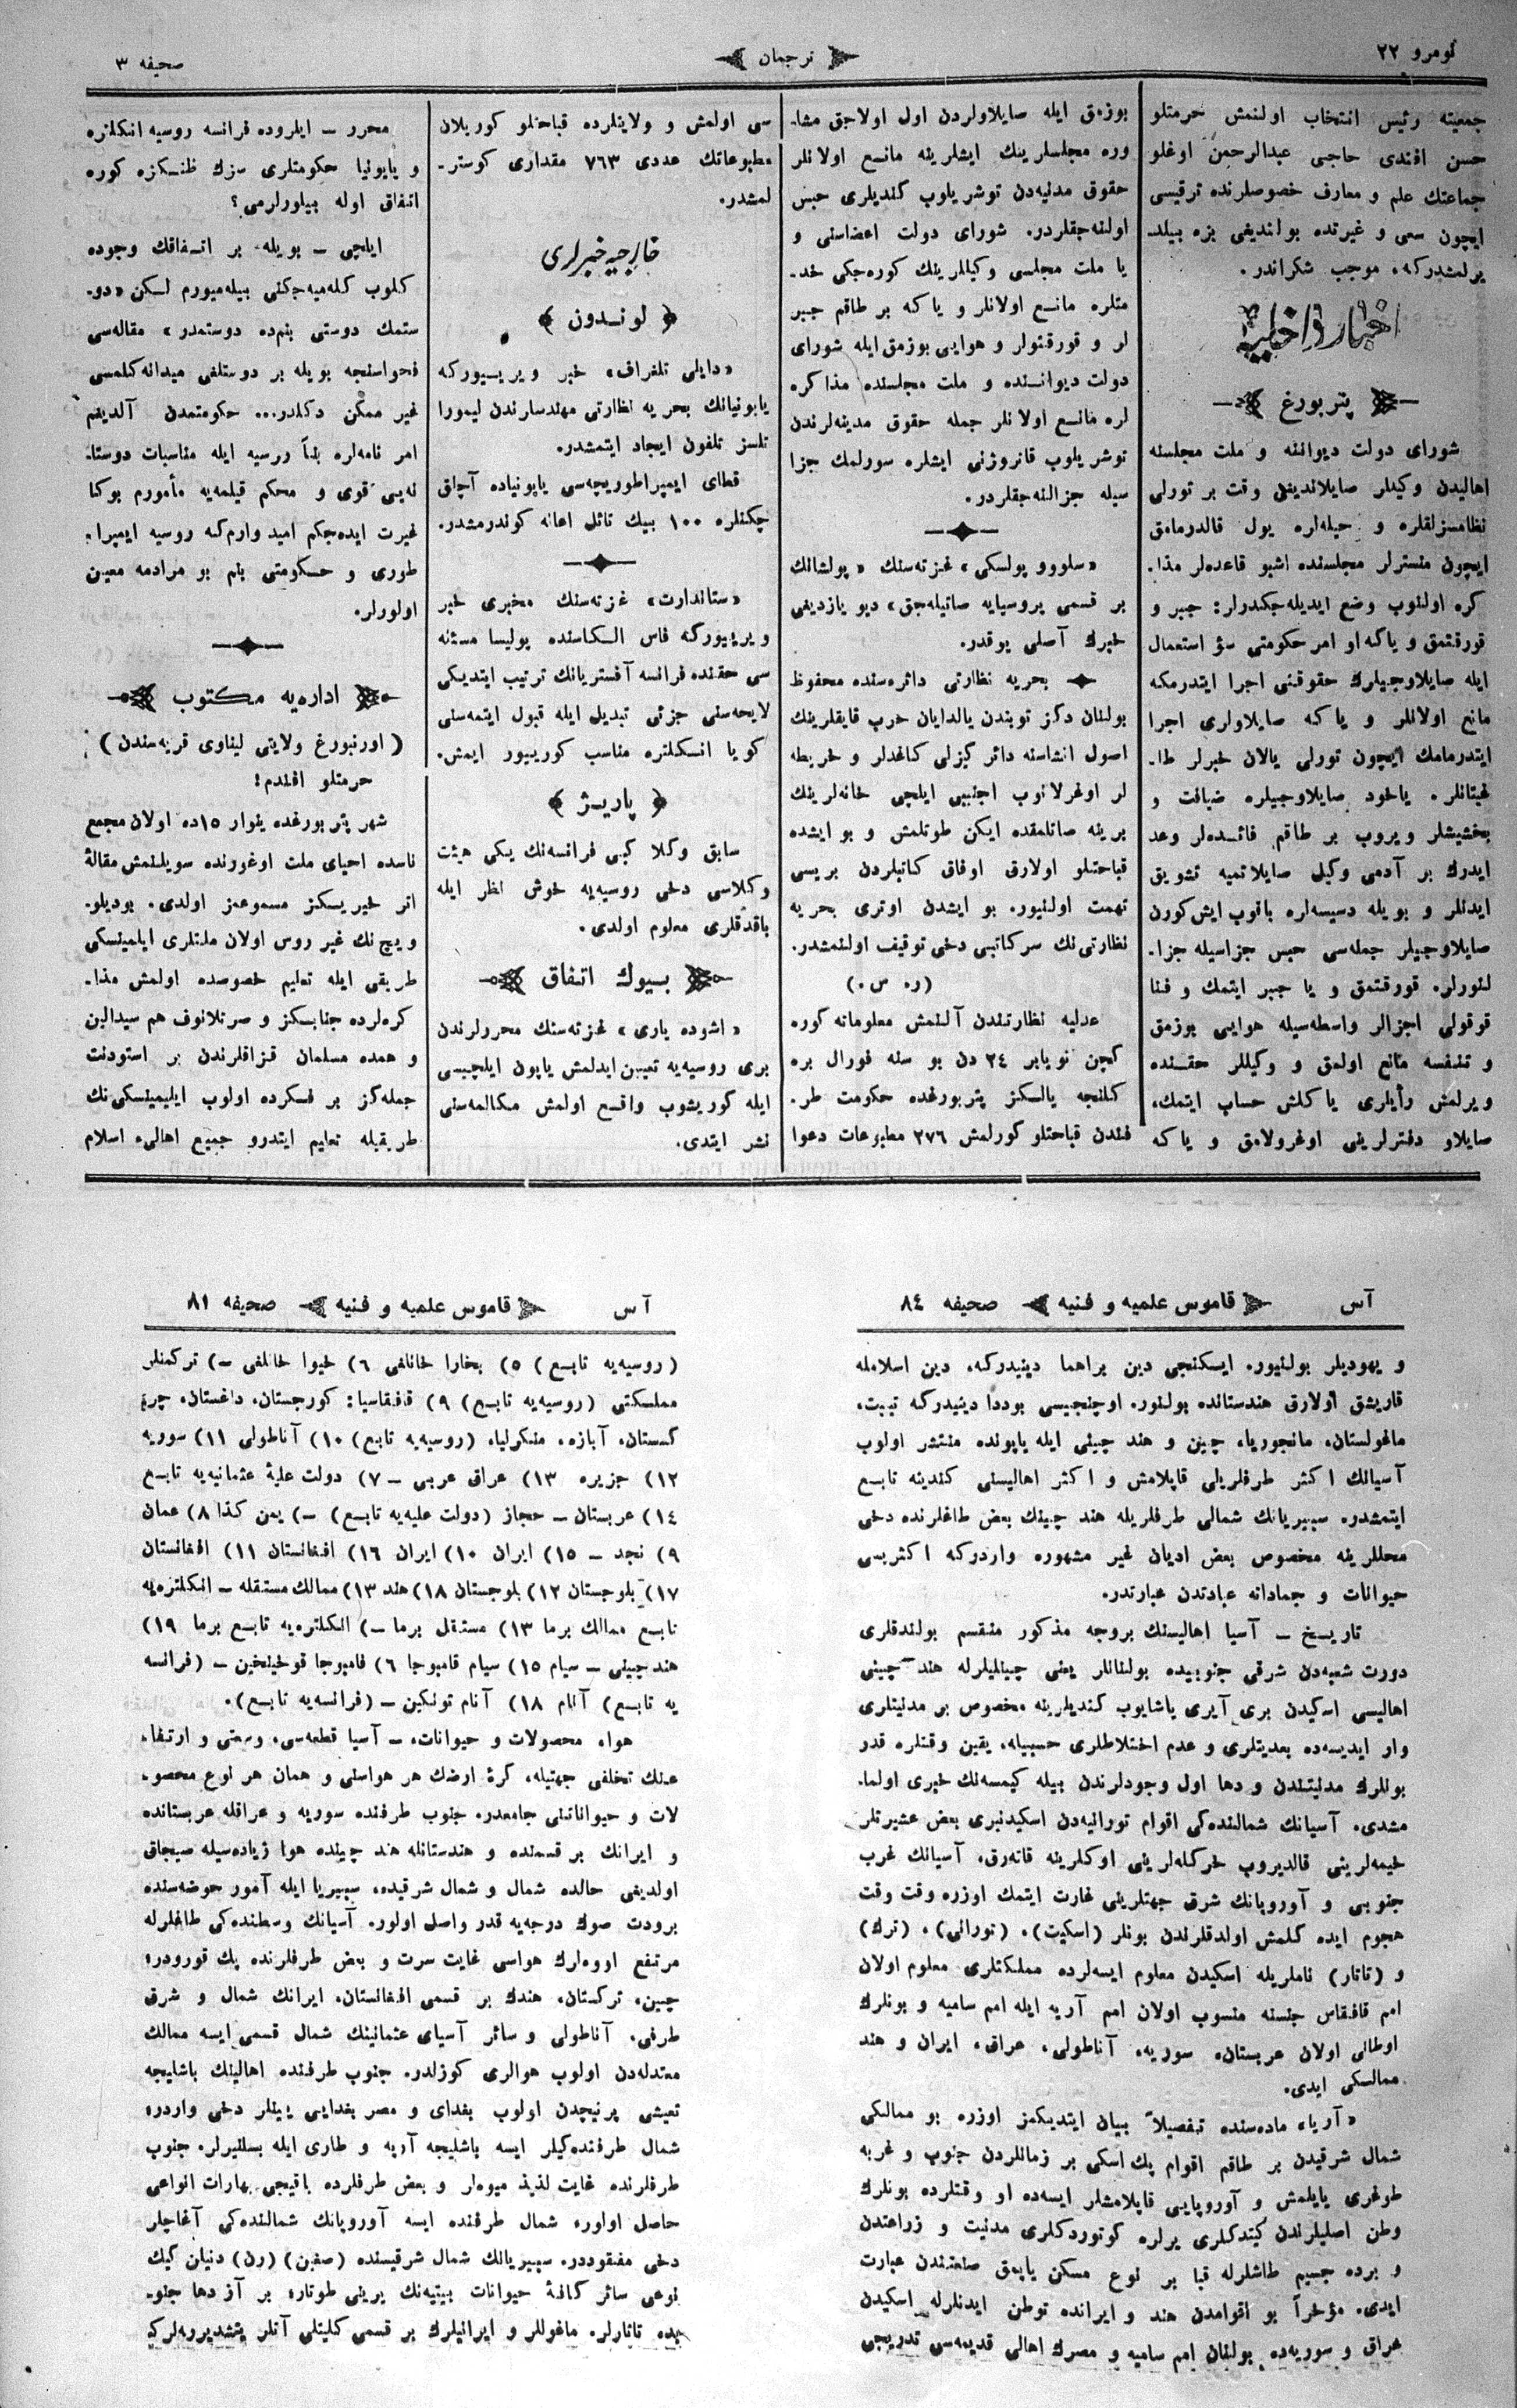 نومرو ٢٢
ترجمان
صحیفه ٣
جمعیته رئیس انتخاب اولنمش حرمتلو
حسن افندی حاجی عبدالرحمن اوغلو
جماعتك علم و معارف خصوصلرنده ترقیسی
ایچون سعی و غیرتده بولندیغی بزه بیلد-
یرلمشدركه، موجب شکراندر.
اخبار داخلیه
پتربورغ
شورای دولت دیواننه و ملت مجلسنه
اهالیدن وکیللر صایلاندیغی وقت بر تورلی
نظامسزلقلره و حیله‌لره یول قالدرمامق
ایچون منسترلر مجلسنده اشبو قاعده‌لر مذا-
کره اولنوب وضع ایدیله‌جکدرلر: جبر و
قورقتمق و یاکه او امر حکومتی سؤ استعمال
ایله صایلاوجیلرك حقوقنی اجرا ایتدرمکه
مانع اولانلر و یا که صایلاولری اجرا
ایتدرمامك ایچون تورلی یالان خبرلر طا-
غیتانلر. یاخود صایلاوجیلره ضیافت و
بخشیشلر ویروب بر طاقم فائده‌لر وعد
ایدرك بر آدمی وکیل صایلاتمیه تشویق
ایدنلر و بویله دسیسه‌لره باقوب ایش کورن
صایلاوجیلر جمله‌سی حبس جزاسیله جزا-
لنورلر. قورقتمق و یا جبر ایتمك و فنا
قوقولی اجزالر واسطه‌سیله هوایی بوزمق
و تنفسه مانع اولمق و وکیللر حقنده
ویرلمش رأیلری یاکلش حساب ایتمك،
صایلاو دفترلرینی اوغرولامق و یا که
بوزمق ایله صایلاولردن اول اولاجق مشا-
وره مجلسلرینك ایشلرینه مانع اولانلر
حقوق مدنیه‌دن توشریلوب کندیلری حبس
اولنه‌جقلردر. شورای دولت اعضاسنی و
یا ملت مجلسی وکیللرینك کوره‌جکی خد-
متلره مانع اولانلر و یا که بر طاقم جبر
لر و قورقتولر و هوایی بوزمق ایله شورای
دولت دیواننده و ملت مجلسنده مذاکره
لره مانع اولانلر جمله حقوق مدینه‌لرندن
توشریلوب قانروژنی ایشلره سورلمك جزا
سیله جزالنه‌جقلردر.
«سلووو پولسکی» غزته‌سنك «پولشانك
بر قسمی پروسیایه صاتیله‌جق» دیو یازدیغی
خبرك آصلی یوقدر.
بحریه نظارتی دائره‌سنده محفوظ
بولنان دکز توبندن یالدایان حرب قایقلرینك
اصول انشاسنه دائر کیزلی کاغدلر و خریطه
لر اوغرلانوب اجنبی ایلچی خانه‌لرینك
برینه صاتلمقده ایکن طوتلمش و بو ایشده
قباحتلو اولارق اوفاق کاتبلردن بریسی
تهمت اولنیور. بو ایشدن اوتری بحریه
نظارتی‌نك سرکاتبی دخی توقیف اولنمشدر.
(ر. س.)
عدلیه نظارتندن آلنمش معلوماته کوره
کچن نویابر ٢٤ دن بو سنه فورال بره
کلنجه یالکز پتربورغده حکومت طر-
فندن قباحتلو کورلمش ٢٧٦ مطبوعات دعوا
سی اولمش و ولایتلرده قباحتلو کوریلان
مطبوعاتك عددی ٧٦٣ مقداری کوستر-
لمشدر.
خارجیه خبرلری
﴿ لوندون ﴾
«دایلی تلغراف» خبر ویریسیورکه
یابونیانك بحریه نظارتی مهندسلرندن لیمورا
تلسز تلفون ایجاد ایتمشدر.
قطای ایمپراطوریچه‌سی یابونیاده آچلق
چکنلره ١٠٠ بیك تائل اعانه کوندرمشدر.
«ستاندارت» غزته‌سنك مخبری خبر
ویریبیورکه فاس الکاسنده پولیسا مسئله
سی حقنده فرانسه آفستریانك ترتیب ایتدیکی
لایحه‌سنی جزئی تبدیل ایله قبول ایتمه‌سنی
کویا انسکلتره مناسب کوریبور ایمش.
﴿ پاریژ ﴾
سابق وکلا کبی فرانسه‌نك یکی هیئت
وکلاسی دخی روسیه‌یه خوش نظر ایله
باقدقلری معلوم اولدی.
بیوك اتفاق
«اشوده یاری» غزته‌سنك محررلرندن
بری روسیه‌یه تعیین ایدلمش یابون ایلچیسی
ایله کوریشوب واقع اولمش مکالمه‌سنی
نشر ایتدی.
محرر – ایلروده فرانسه روسیه انکلتره
و یابونیا حکومتلری سزك ظنکزه کوره
اتفاق اوله بیلورلرمی؟
ایلچی – بویله بر اتفاقك وجوده
کلوب کله‌میه‌جکنی بیله‌میورم لسکن «دو-
ستمك دوستی بنم‌ده دوستمدر» مقاله‌سی
فحواسنجه بویله بر دوستلغی میدانه کلمسی
غیر ممکن دکلدر... حکومتمدن آلدیغم
امر نامه‌لره بنأ روسیه ایله مناسبات دوستا-
نه‌یی قوی و محکم قیلمه‌یه مأمورم بوکا
غیرت ایده‌جکم امید وارم که روسیه ایمپرا-
طوری و حکومتی بنم بو مرادمه معین
اولورلر.
اداره‌یه مکتوب
(اورنبورغ ولایتی لیناوی قریه‌سندن)
حرمتلو افندم!
شهر پتربورغده ینوار ١٥ده اولان مجمع
ناسده احیای ملت اوغورنده سویلنمش مقالۀ
اتر خیریسکز مسموعمز اولدی. بودیلو-
ویچ نك غیر روس اولان ملتلری ایلمینسکی
طریقی ایله تعلیم خصوصده اولمش مذا-
کره‌لرده جنابکز و صرتلانوف هم سیدالین
و همده مسلمان قزاقلرندن بر استودنت
جمله‌کز بر فکرده اولوب ایلیمینسکی‌نك
طریقیله تعلیم ایتدرو جمیع اهالیء اسلام
آس
قاموس علمیه و فنیه
صحیفه ٨٤
و یهودیلر بولنیور. ایکنجی دین براهما دینیدرکه، دین اسلامله
قاریشق اولارق هندستانده بولنور. اوچنجیسی بوددا دینیدرکه تیبت،
ماغولستان، مانجوریا، چین و هند چینی ایله یاپونده منتشر اولوب
آسیانك اکثر طرفلریلی قاپلامش و اکثر اهالیسنی کندینه تابع
ایتمشدر. سیبیریانك شمالی طرفلریله هند چینك بعض طاغلرنده دخی
محللرینه مخصوص بعض ادیان غیر مشهوره واردرکه اکثریسی
حیوانات و جماداته عبادتدن عبارتدر.
تاریخ – آسیا اهالیسنك بروجه مذکور منقسم بولندقلری
دورت شعبه‌دن شرقی جنوبیده بولنانلر یعنی چینلیلرله هند چینی
اهالیسی اسکیدن بری آیری یاشایوب کندیلرینه مخصوص بر مدنیتلری
وار ایدیسه‌ده بعدیتلری و عدم اختلاطلری حسبیله، یقین وقتلره قدر
بونلرك مدنیتندن و دها اول وجودلرندن بیله کیمسه‌نك خبری اولما-
مشدی. آسیانك شمالنده‌کی اقوام تورانیه‌دن اسکیدنبری بعض عشیرتلر
خیمه‌لرینی قالدیروب خرکله‌لرینی اوکلرینه قاته‌رق، آسیانك غرب
جنوبی و آوروپانك شرق جهتلرینی غارت ایتمك اوزره وقت وقت
هجوم ایده کلمش اولدقلرندن بونلر (اسکیت)، (تورانی)، (ترك)
و (تاتار) ناملریله اسکیدن معلوم ایسه‌لرده مملکتلری معلوم اولان
امم قافقاس جنسنه منسوب اولان امم آریه ایله امم سامیه و بونلرك
اوطانی اولان عربستان، سوریه، آناطولی، عراق، ایران و هند
ممالکی ایدی.
«آریا» ماده‌سنده تفصیلاً بیان ایتدیکمز اوزره بو ممالکی
شمال شرقیدن بر طاقم اقوام پك اسکی بر زمانلردن جنوب و غربه
طوغری یایلمش و آوروپایی قاپلامشلر ایسه‌ده او وقتلرده بونلرك
وطن اصلیلرندن کیتدکلری یرلره کوتوردکلری مدنیت و زراعتدن
و برده جسیم طاشلرله قبا بر نوع مسکن یاپمق صنعتندن عبارت
ایدی. مؤخراً بو اقوامدن هند و ایرانده توطن ایدنلرله اسکیدن
عراق و سوریه‌ده بولنان امم سامیه و مصرك اهالی قدیمه‌سی تدریجی
آس
قاموس علمیه و فنیه
صحیفه ٨١
(روسیه‌یه تابع) ٥) بخارا خانلغی ٦) خیوا خانلغی –) ترکمنلر
مملکتی (روسیه‌یه تابع) ٩) قافقاسیا: کورجستان، داغستان، چر
کستان، آبازه، منکرلیا، (روسیه‌یه تابع) ١٠) آناطولی ١١) سوریه
١٢) جزیره ١٣) عراق عربی – ٧) دولت علیۀ عثمانیه‌یه تابع
١٤) عربستان – حجاز (دولت علیه‌یه تابع) –) یمن کذا ٨) عمان
٩) نجد – ١٥) ایران ١٠) ایران ١٦) افغانستان ١١) افغانستان
١٧) بلوجستان ١٢) بلوجستان ١٨) هند ١٣) ممالك مستقله – انکلتره‌یه
تابع ممالك برما ١٣) مستقل برما –) انکلتره‌یه تابع برما ١٩)
هندچینی – سیام ١٥) سیام قامبوجا ٦) قامبوجا قوخینخین – (فرانسه
یه تابع) آنام ١٨) آنام تونکین – (فرانسه‌یه تابع).
هوا، محصولات و حیوانات. – آسیا قطعه‌سی، وسعتی و ارتفا-
عنك تخلفی جهتیله، کرۀ ارضك هر هواسنی و همان هر نوع محصو-
لات و حیواناتنی جامعدر. جنوب طرفنده سوریه و عراقله عربستانده
و ایرانك بر قسمنده و هندستانله هند چینده هوا زیاده‌سیله صیجاق
اولدیغی حالده شمال و شمال شرقیده، سیبیریا ایله آمور حوضه‌سنده
برودت صوك درجه‌یه قدر واصل اولور. آسیانك وسطنده‌کی طاغلرله
مرتفع اووه‌لرك هواسی غایت سرت و بعض طرفلرنده پك قورودر؛
چین، ترکستان، هندك بر قسمی افغانستان، ایرانك شمال و شرق
طرفی، آناطولی و سائر آسیای عثمانینك شمال قسمی ایسه ممالك
معتدله‌دن اولوب هوالری کوزلدر. جنوب طرفنده اهالینك باشلیجه
تعیشی پرنیچدن اولوب بغدای و مصر بغدایی یینلر دخی واردر؛
شمال طرفنده‌کیلر ایسه باشلیجه آرپه و طاری ایله بسلنیرلر. جنوب
طرفلرنده غایت لذیذ میوه‌لر و بعض طرفلرده باقیجی بهارات انواعی
حاصل اولور؛ شمال طرفنده ایسه آوروپانك شمالنده‌کی آغاچلر
دخی مفقوددر. سیبیریانك شمال شرقیسنده (صغین) (رن) دنیلن کیك
نوعی سائر کافۀ حیوانات بیتیه‌نك یرینی طوتار؛ بر آز دها جنو-
بده تاتارلر، ماغوللر و ایرانیلرك بر قسمی کلیتلی آتلر